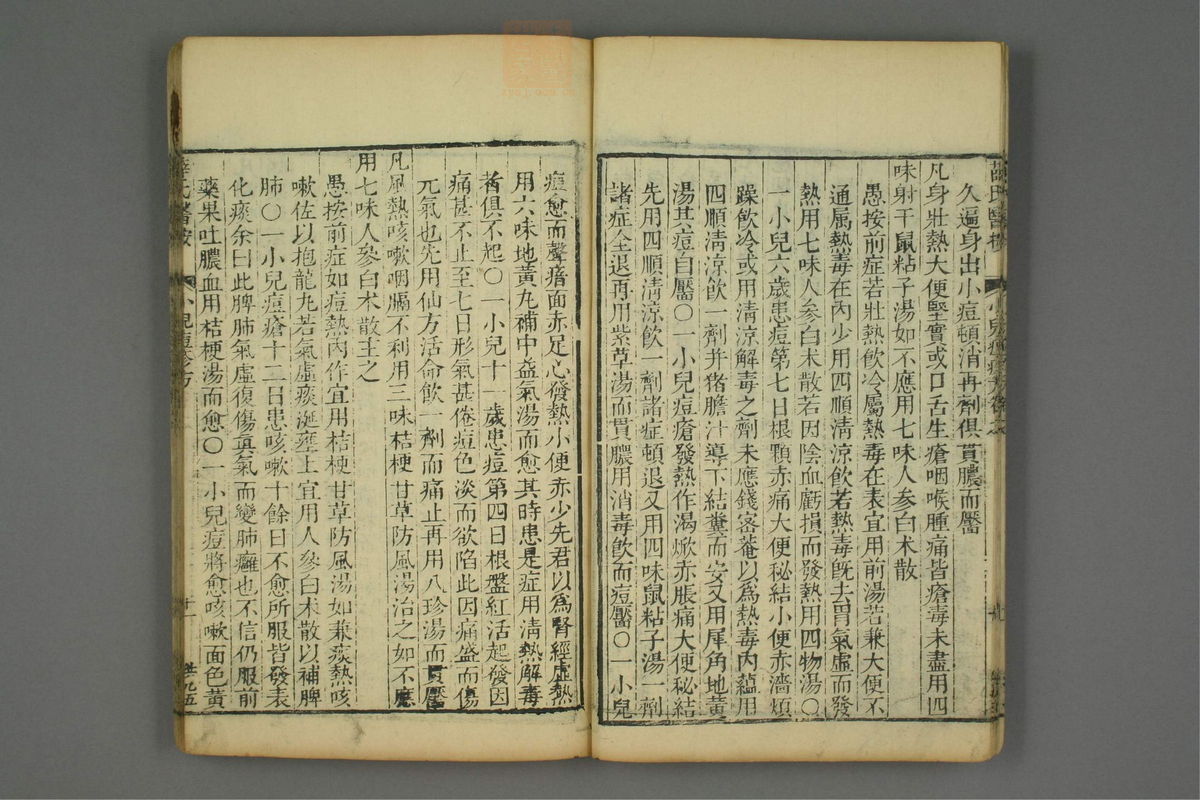 久遍身出小痘頓消再劑俱貫膿而靨
凡身壯熱大便堅實或口舌生瘡咽喉腫痛皆瘡毒未盡用四
味射干鼠粘子湯如不應用七味人參白朮散
愚按前症若壯熱飲冷屬熱毒在表宜用前湯若兼大便不
通属熱毒在內少用四順清涼飲若熱毒旣去胃氣虛而發
熱用七味人參白朮散若因陰血虧損而發熱用四物湯〇
一小兒六歲患痘第七日根顆赤痛大便秘結小便赤濇煩
躁飲冷或用清涼解毒之劑未應錢密菴以為熱毒內蘊用
四順清涼飲一劑并猪膽汁導下結糞而安又用犀角地黃
湯其痘自靨〇一小兒痘瘡發熱作渴焮赤脹痛大便秘結
先用四順清涼飲一劑諸症頓退又用四味鼠粘子湯一劑
諸症全退再用紫草湯而貫膿用消毒飲而痘靨〇一小兒
痘愈而聲瘖面赤足心發熱小便赤少先君以為腎經虛熱
用六味地黃丸補中益氣湯而愈其時患是症用清熱解毒
者俱不起〇一小兒十一歲患痘第四日根盤紅活起發因
痛甚不止至七日形氣甚倦痘色淡而欲陷此因痛盛而傷
元氣也先用仙方活命飲一劑而痛止再用八珍湯而貫靨
凡風熱咳嗽咽膈不利用三味桔梗甘草防風湯治之如不應
用七味人參白朮散主之
愚按前症如痘熱內作宜用桔梗甘草防風湯如兼痰熱咳
嗽佐以抱龍丸若氣虛痰涎壅上宜用人參白朮散以補脾
肺〇一小兒痘瘡十二日患咳嗽十餘日不愈所服皆發表
化痰余曰此脾肺氣虛復傷眞氣而變肺癰也不信仍服前
藥果吐膿血用桔梗湯而愈〇一小兒痘將愈咳嗽面色黃